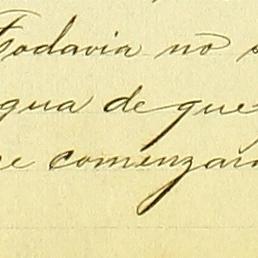 Todavia no s
gua de que
e comenzara